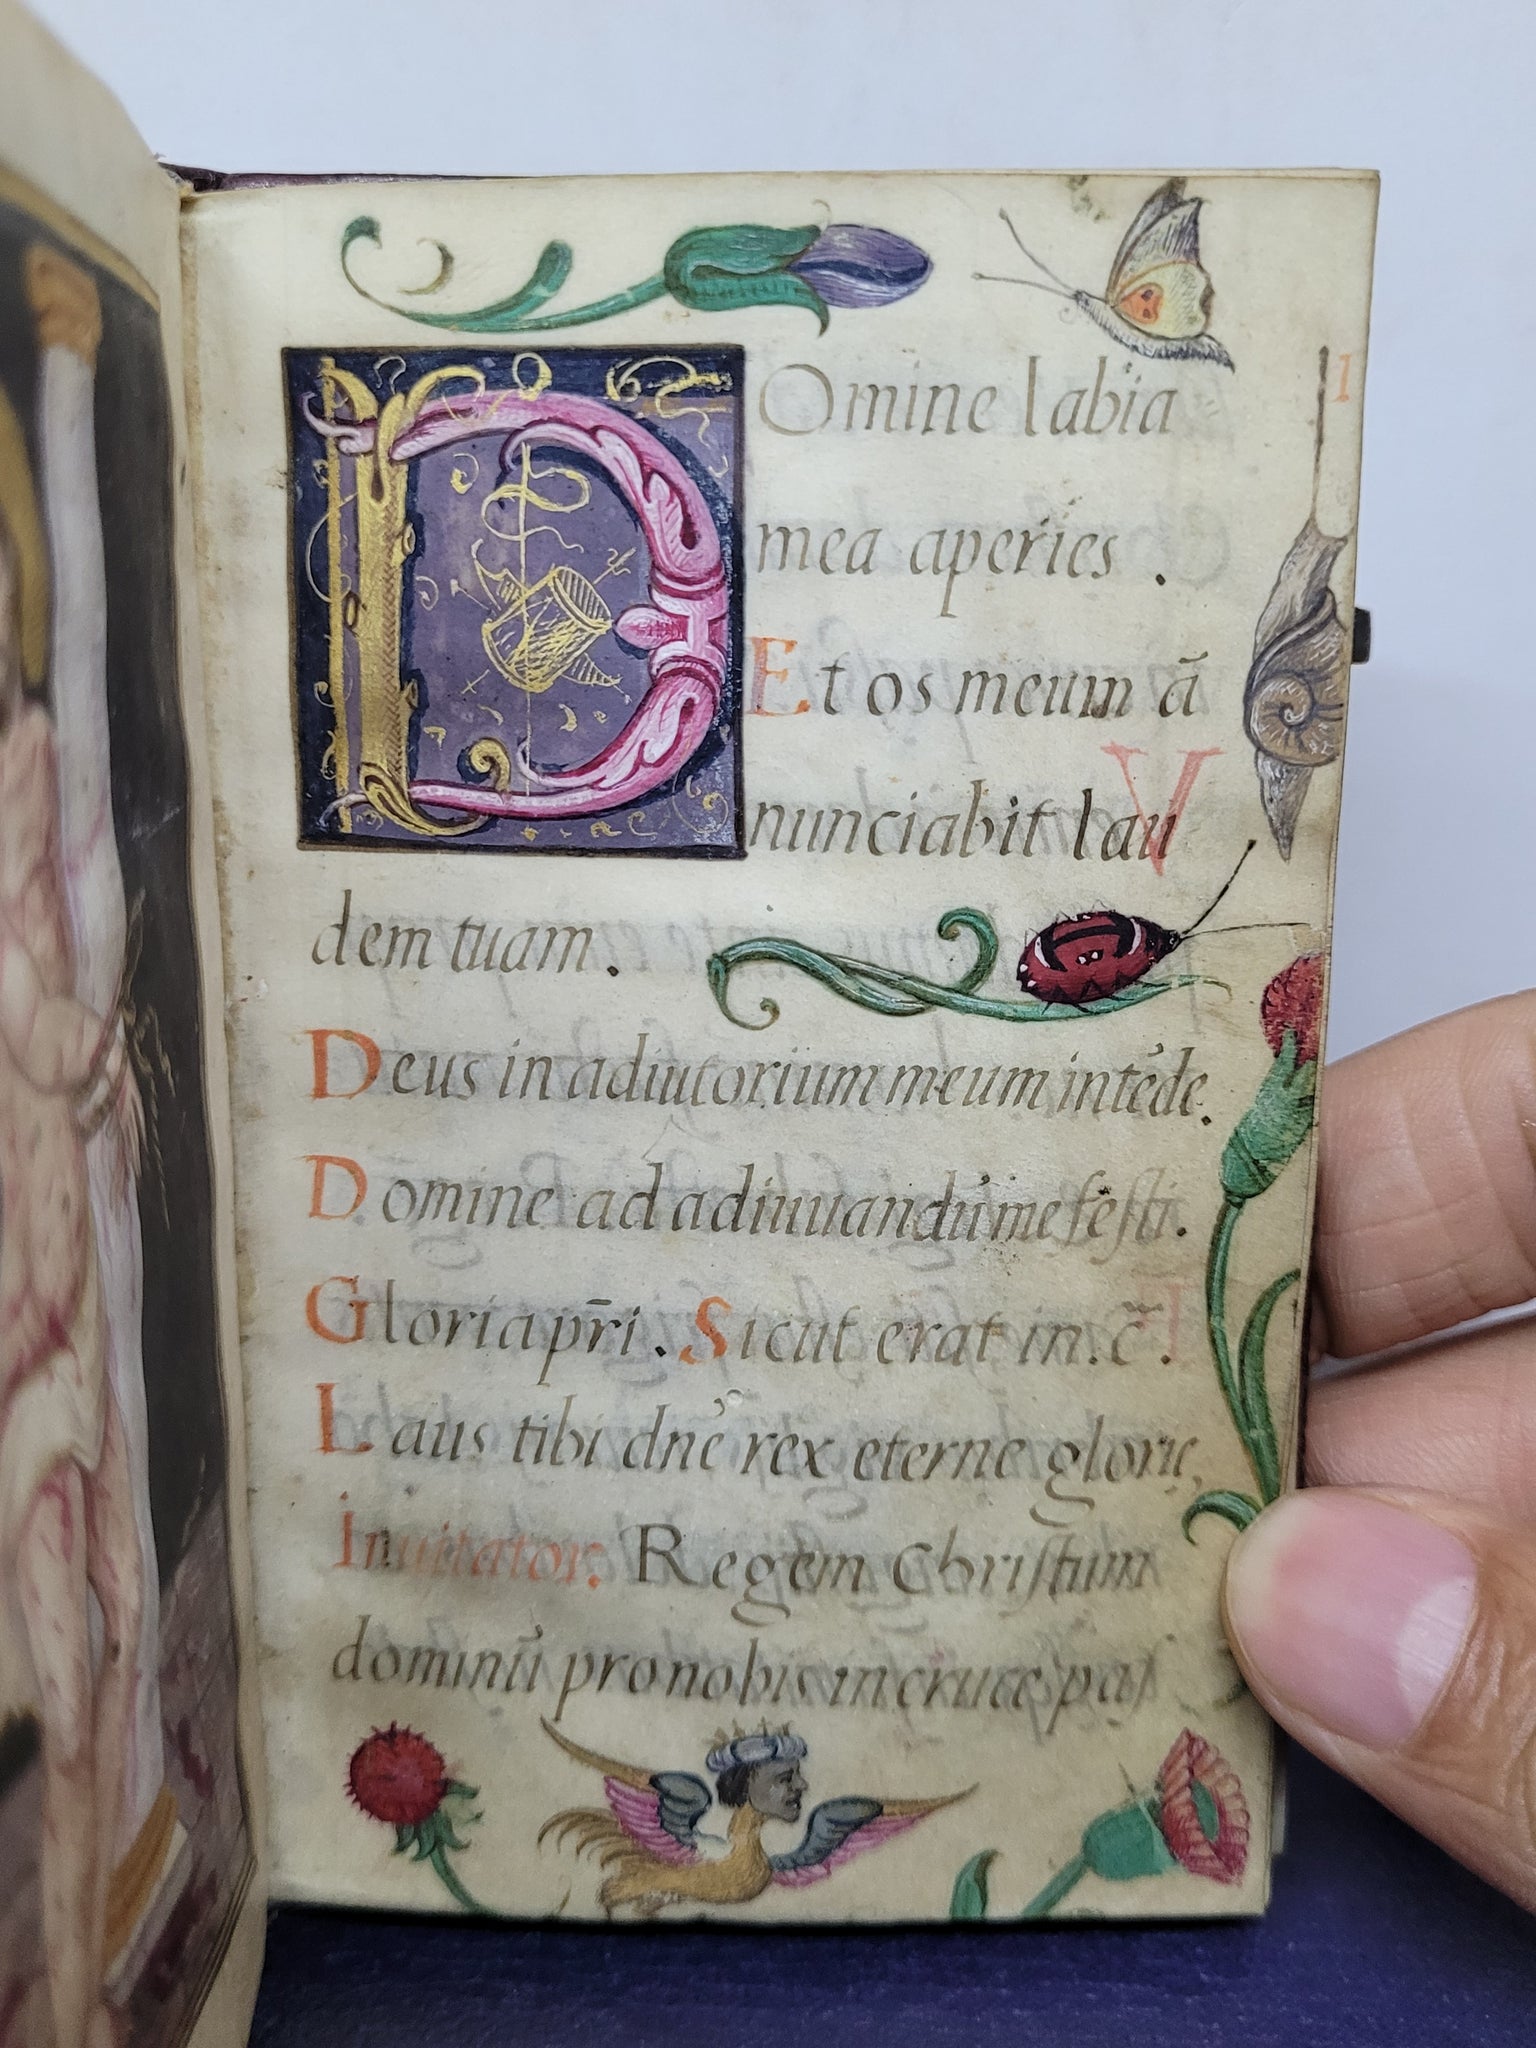 1
DOmine labia
mea aperies .
Et os meum ā
nunciabit lau
dem tuam .
Deus in adiutorium meum intēde.
Domine ad adiuuandū me festi.
Gloria pr̄i . Sicut erat in. c̄ .
Laus tibi dn̄e rex eterne glorię,
Inuitator. Regem Christum
dominū pro nobis in cruce pas